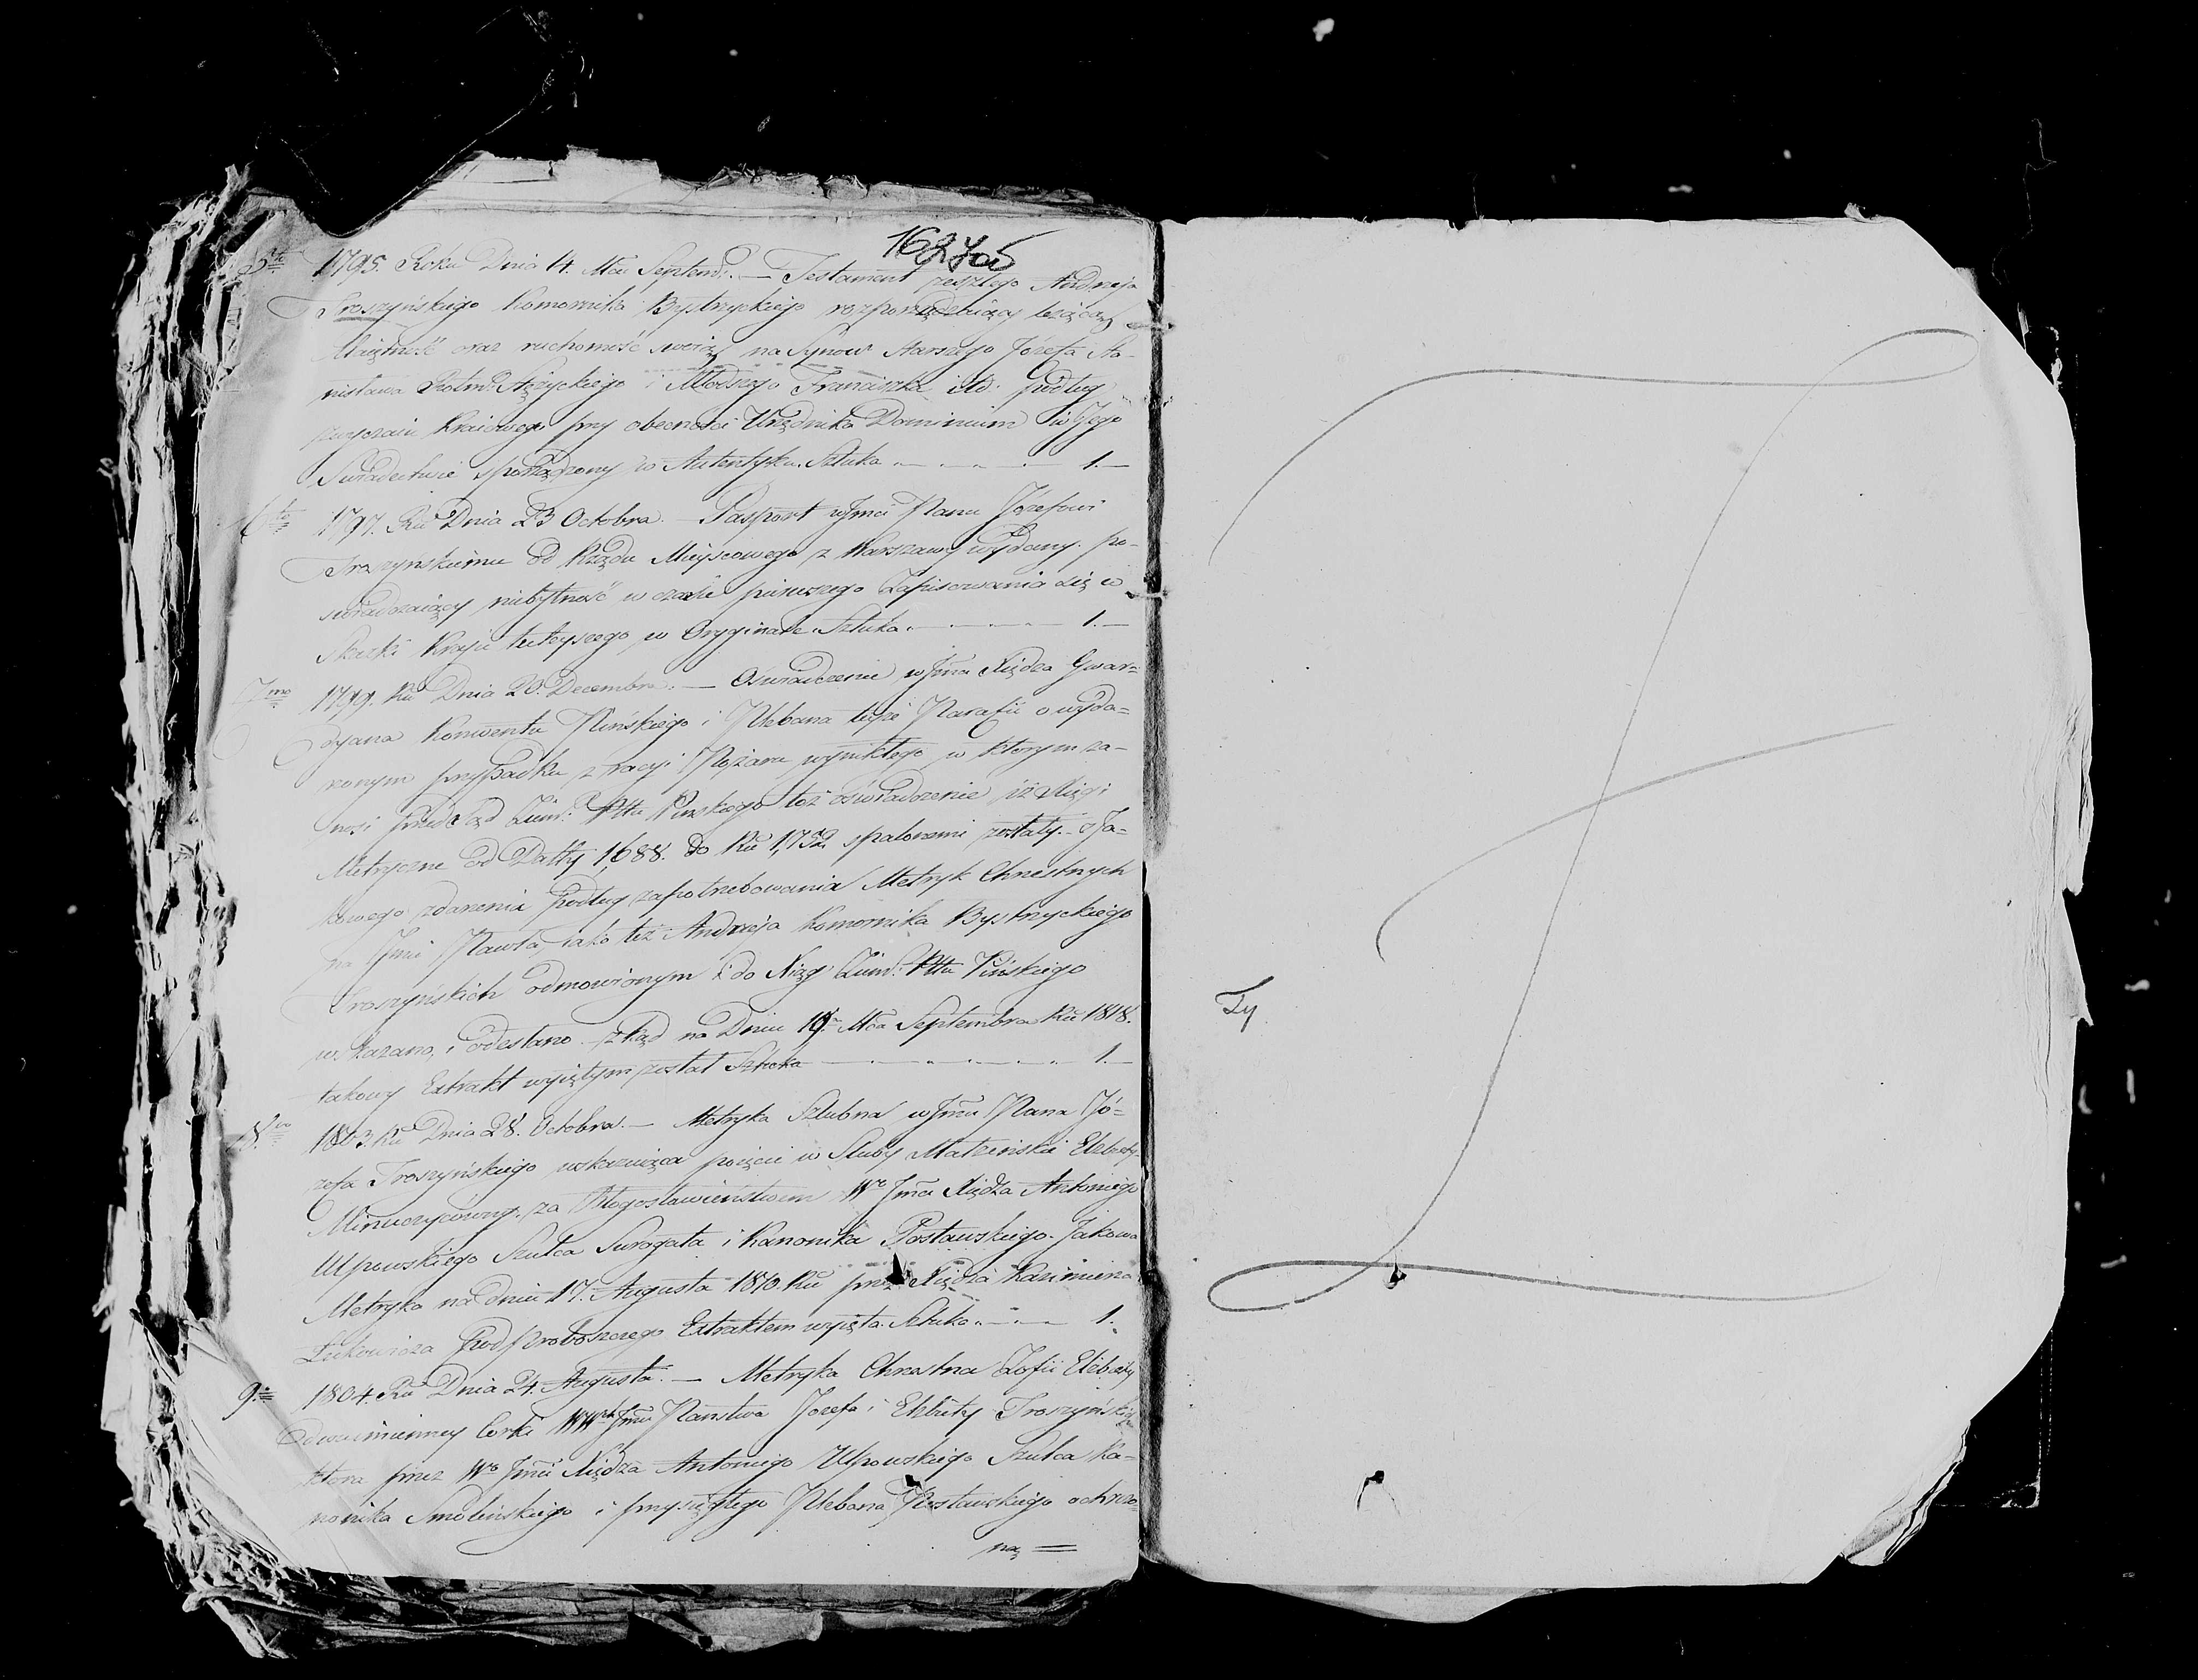 162 405
5to 1795. Roku Dnia 14. Mca Septembr. — Testament zeszłego Andrzeja
Troszyńskiego Komornika Bystrzyckiego rozporządzaiący leżącą
Maiętność oraz ruchomość swoię na Synow Starszego Józefa Sta-
nisława Rotm: Stężyckiego i Młodszego Franciszka itd: podług
zwyczaiu Kraiowego przy obecności Urzędnika Dominium i w Jego
Swiadectwie sporządzony w Autentyku. Sztuka 1.—
6to 1797. Ru Dnia 23 Octobra. — Pasport wJmci Panu Józefowi
Troszynskiemu od Rządu Mieyscowego z Warszawy wydany. po-
swiadczaiący niebytność w czasie pierwszego Zapisowania się w
Skazki Kraju tuteyszego w Oryginale. Sztuka. 1.—
7mo 1799. Ru Dnia 20. Decembra. — Oswiadczenie wJmci Xiędza Gwar-
dyana Konwentu Pińskiego i Plebana teyże Parafii o wyda-
rzonym przypadku z racyi Pożaru wynikłego w którym za-
nosi przed Sąd Ziem: Pttu Pinskiego też oświadczenie iż Xięgi
Metryczne od Datty 1688. do Ru 1752 spalonemi zostały. z Ja-
kowego zdarzenia podług zapotrzebowania Metryk Chrestnych
na Jmie Pawła, iako też Andrzeja Komornika Bystrzyckiego
Troszyńskich odmowionym i do Xiąg Ziem: Pttu Pińskiego
wskazano, i odesłano zkąd na Dniu 19 Mca Septembra Ru 1818.
takowy Extrakt wyiętym został Sztuka 1.—
8vo 1803. Ru Dnia 28. Octobra. — Metryka Szlubna wJmci Pana Jó-
zefa Troszyńskiego wskazuiąca poięcie w Szluby Małżeńskie Elżbiety
za Błogosławieństwem Wo Jmci Xiędza Antoniego
Ulpowskiego Szulca Surogata i Kanonika Postawskiego. Jakowa
Metryka na dniu 17. Augusta 1810. Ru przez Xiędza Kazimierza
Podproboszczego Extraktem wyięta. Sztuka 1.
9. 1804. Ru Dnia 24. Augusta. — Metryka Chrestna Zofii Elżbiety
dwuimienney Corki WWch Jmci Państwa Jozefa i Elżbiety Troszyńskich
ktora przez Wo Jmci Xiędza Antoniego Ulpowskiego Szulca Ka-
nonika Smoleńskiego i przysięgłego Plebana Postawskiego ochrzo-
ną =